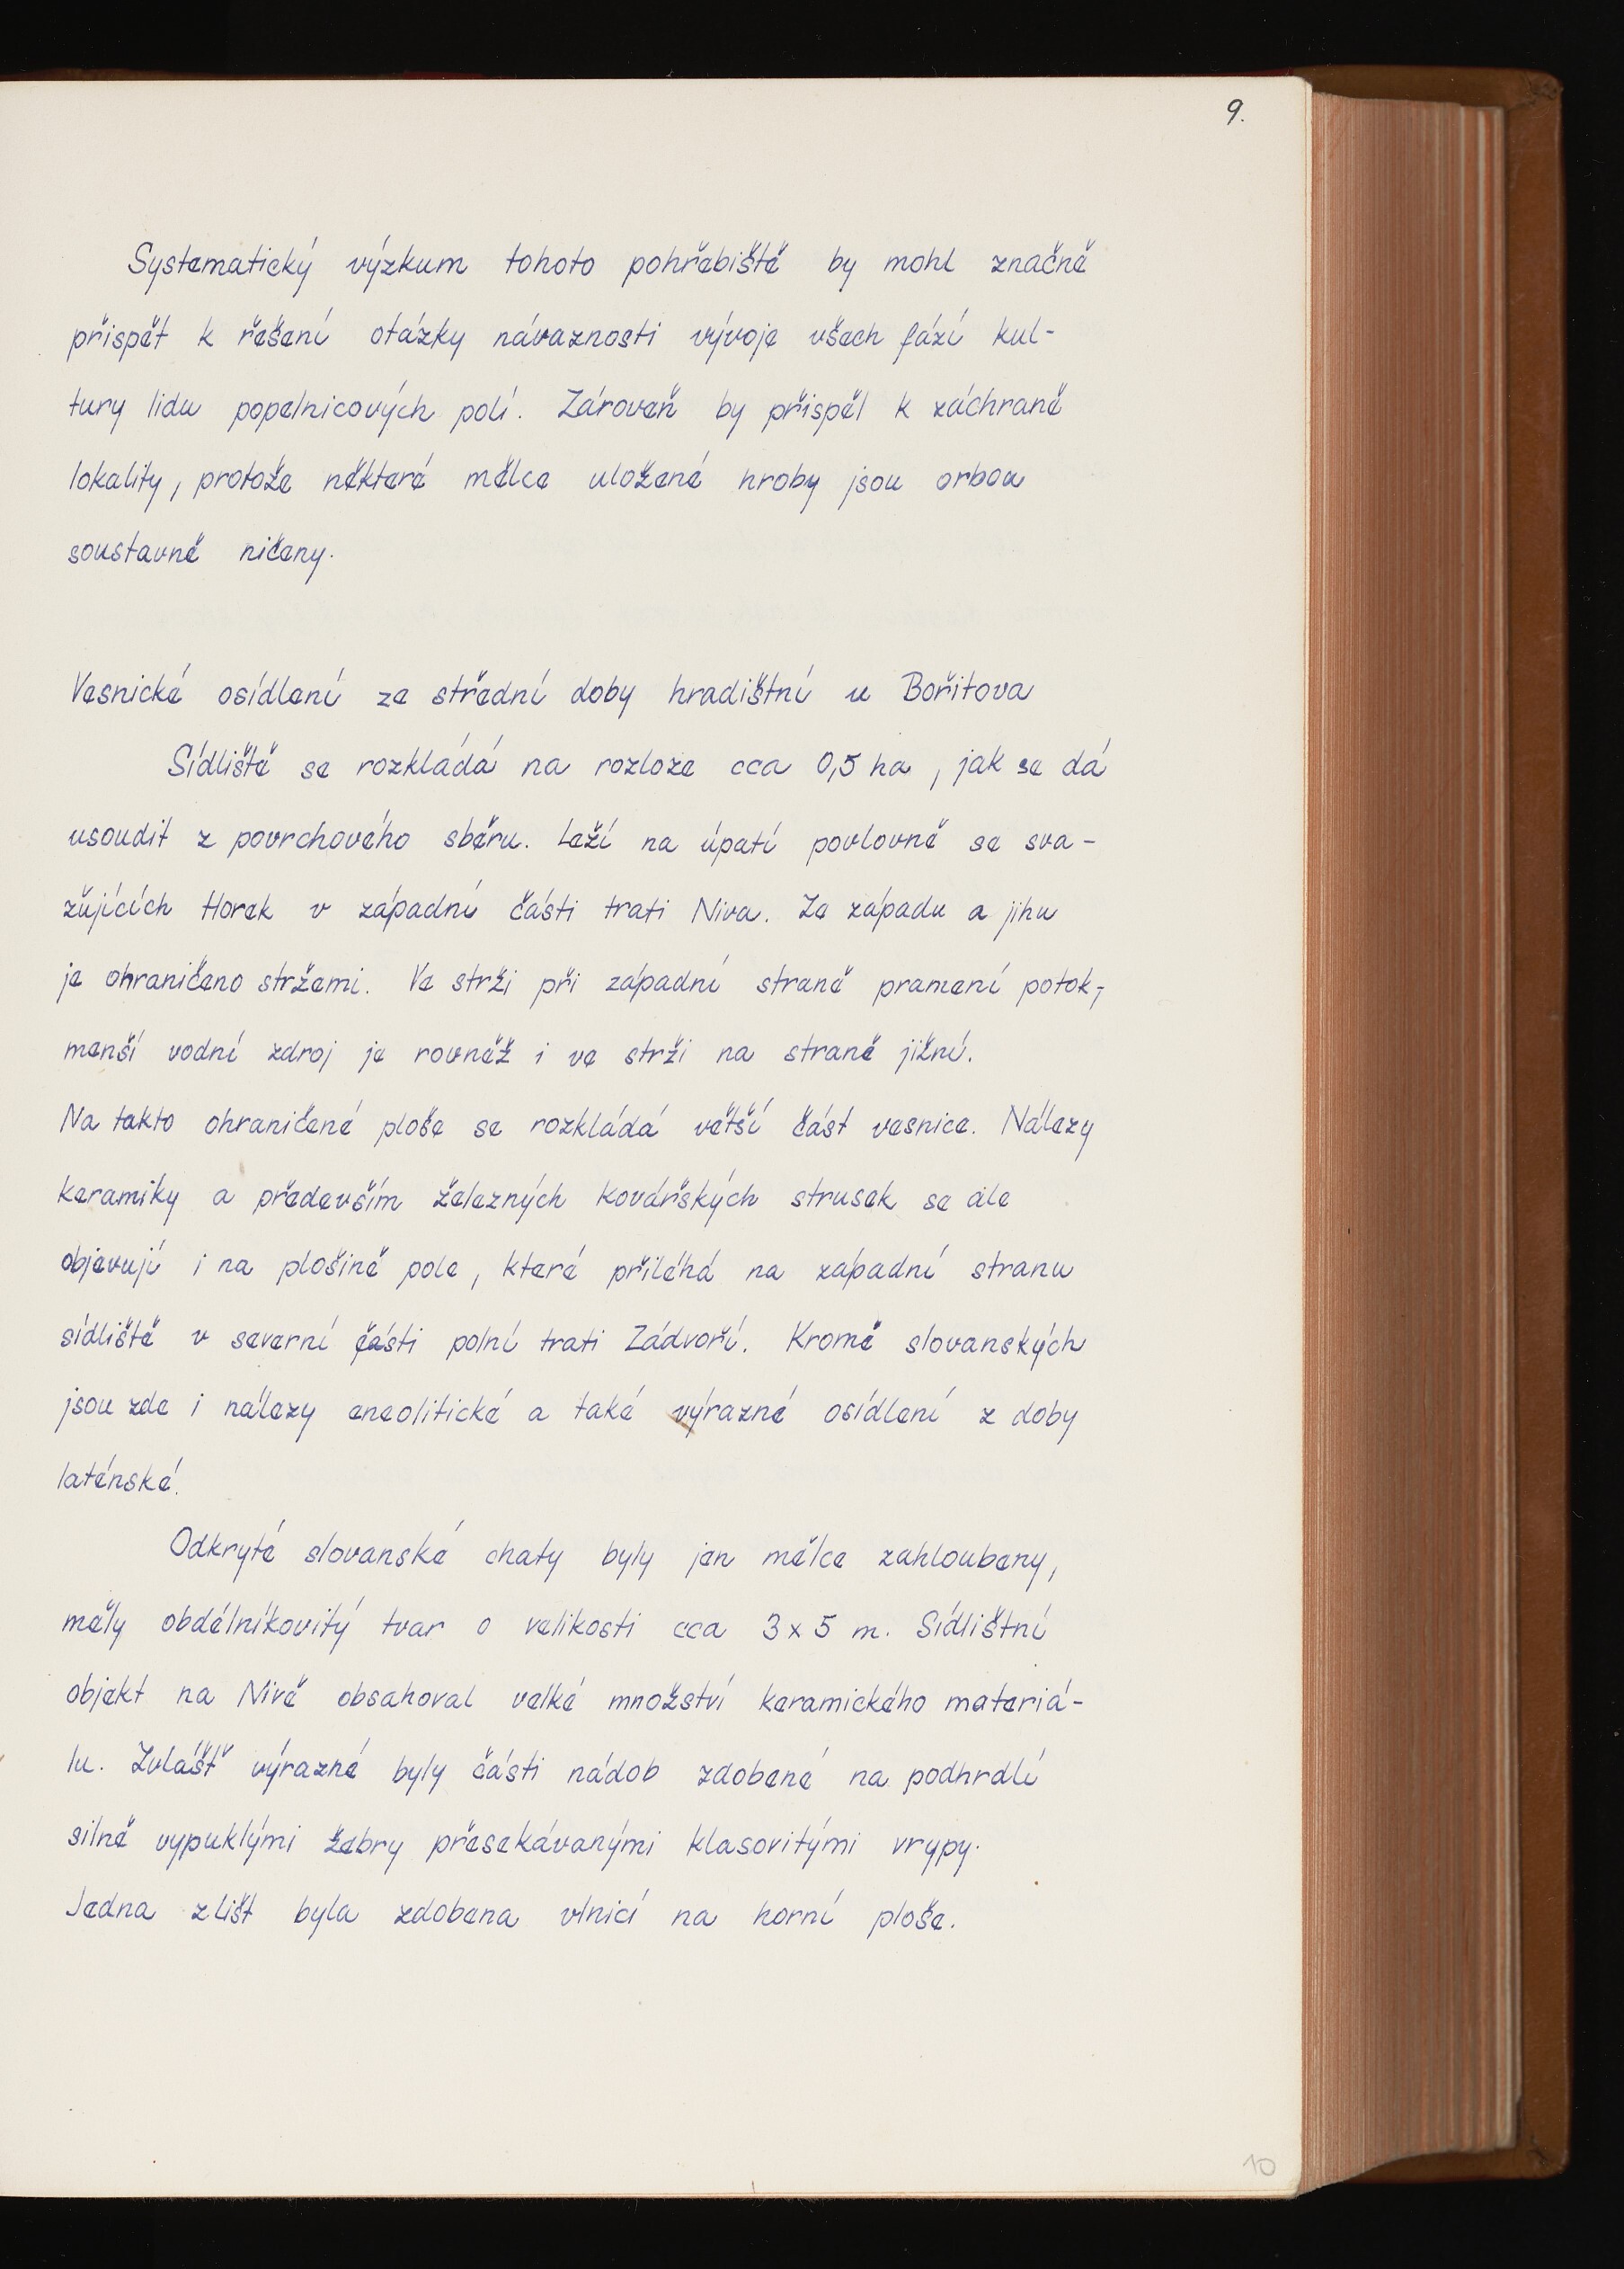 9.
Systematický výzkum tohoto pohřebiště by mohl značně
přispět k řešení otázky návaznosti vývoje všech fází kul-
tury lidu popelnicových polí. Zároveň by přispěl k záchraně
lokality, protože některé mělce uložené hroby jsou orbou
soustavně ničeny.
Vesnické osídlení ze střední doby hradištní u Bořitova
Sídliště se rozkládá na rozloze cca 0,5 ha, jak se dá
usoudit z povrchového sběru. Leží na úpatí povlovně se sva-
žujících Horek v západní části trati Niva. Ze západu a jihu
je ohraničeno stržemi. Ve strži při západní straně pramení potok,
menší vodní zdroj je rovněž i ve strži na straně jižní.
Na takto ohraničené ploše se rozkládá větší část vesnice. Nálezy
keramiky a především železných kovářských strusek se ale
objevují i na plošině pole, které přiléhá na západní stranu
sídliště v severní části polní trati Zádvoří. Kromě slovanských
jsou zde i nálezy eneolitické a také výrazné osídlení z doby
laténské.
Odkryté slovanské chaty byly jen mělce zahloubeny,
měly obdélníkovitý tvar o velikosti cca 3 x 5 m. Sídlištní
objekt na Nivě obsahoval velké množství keramického materiá-
lu. Zvlášť výrazné byly části nádob zdobené na podhrdlí
silně vypuklými žebry přesekávanými klasovitými vrypy.
Jedna z lišt byla zdobena vlnicí na horní ploše.
10